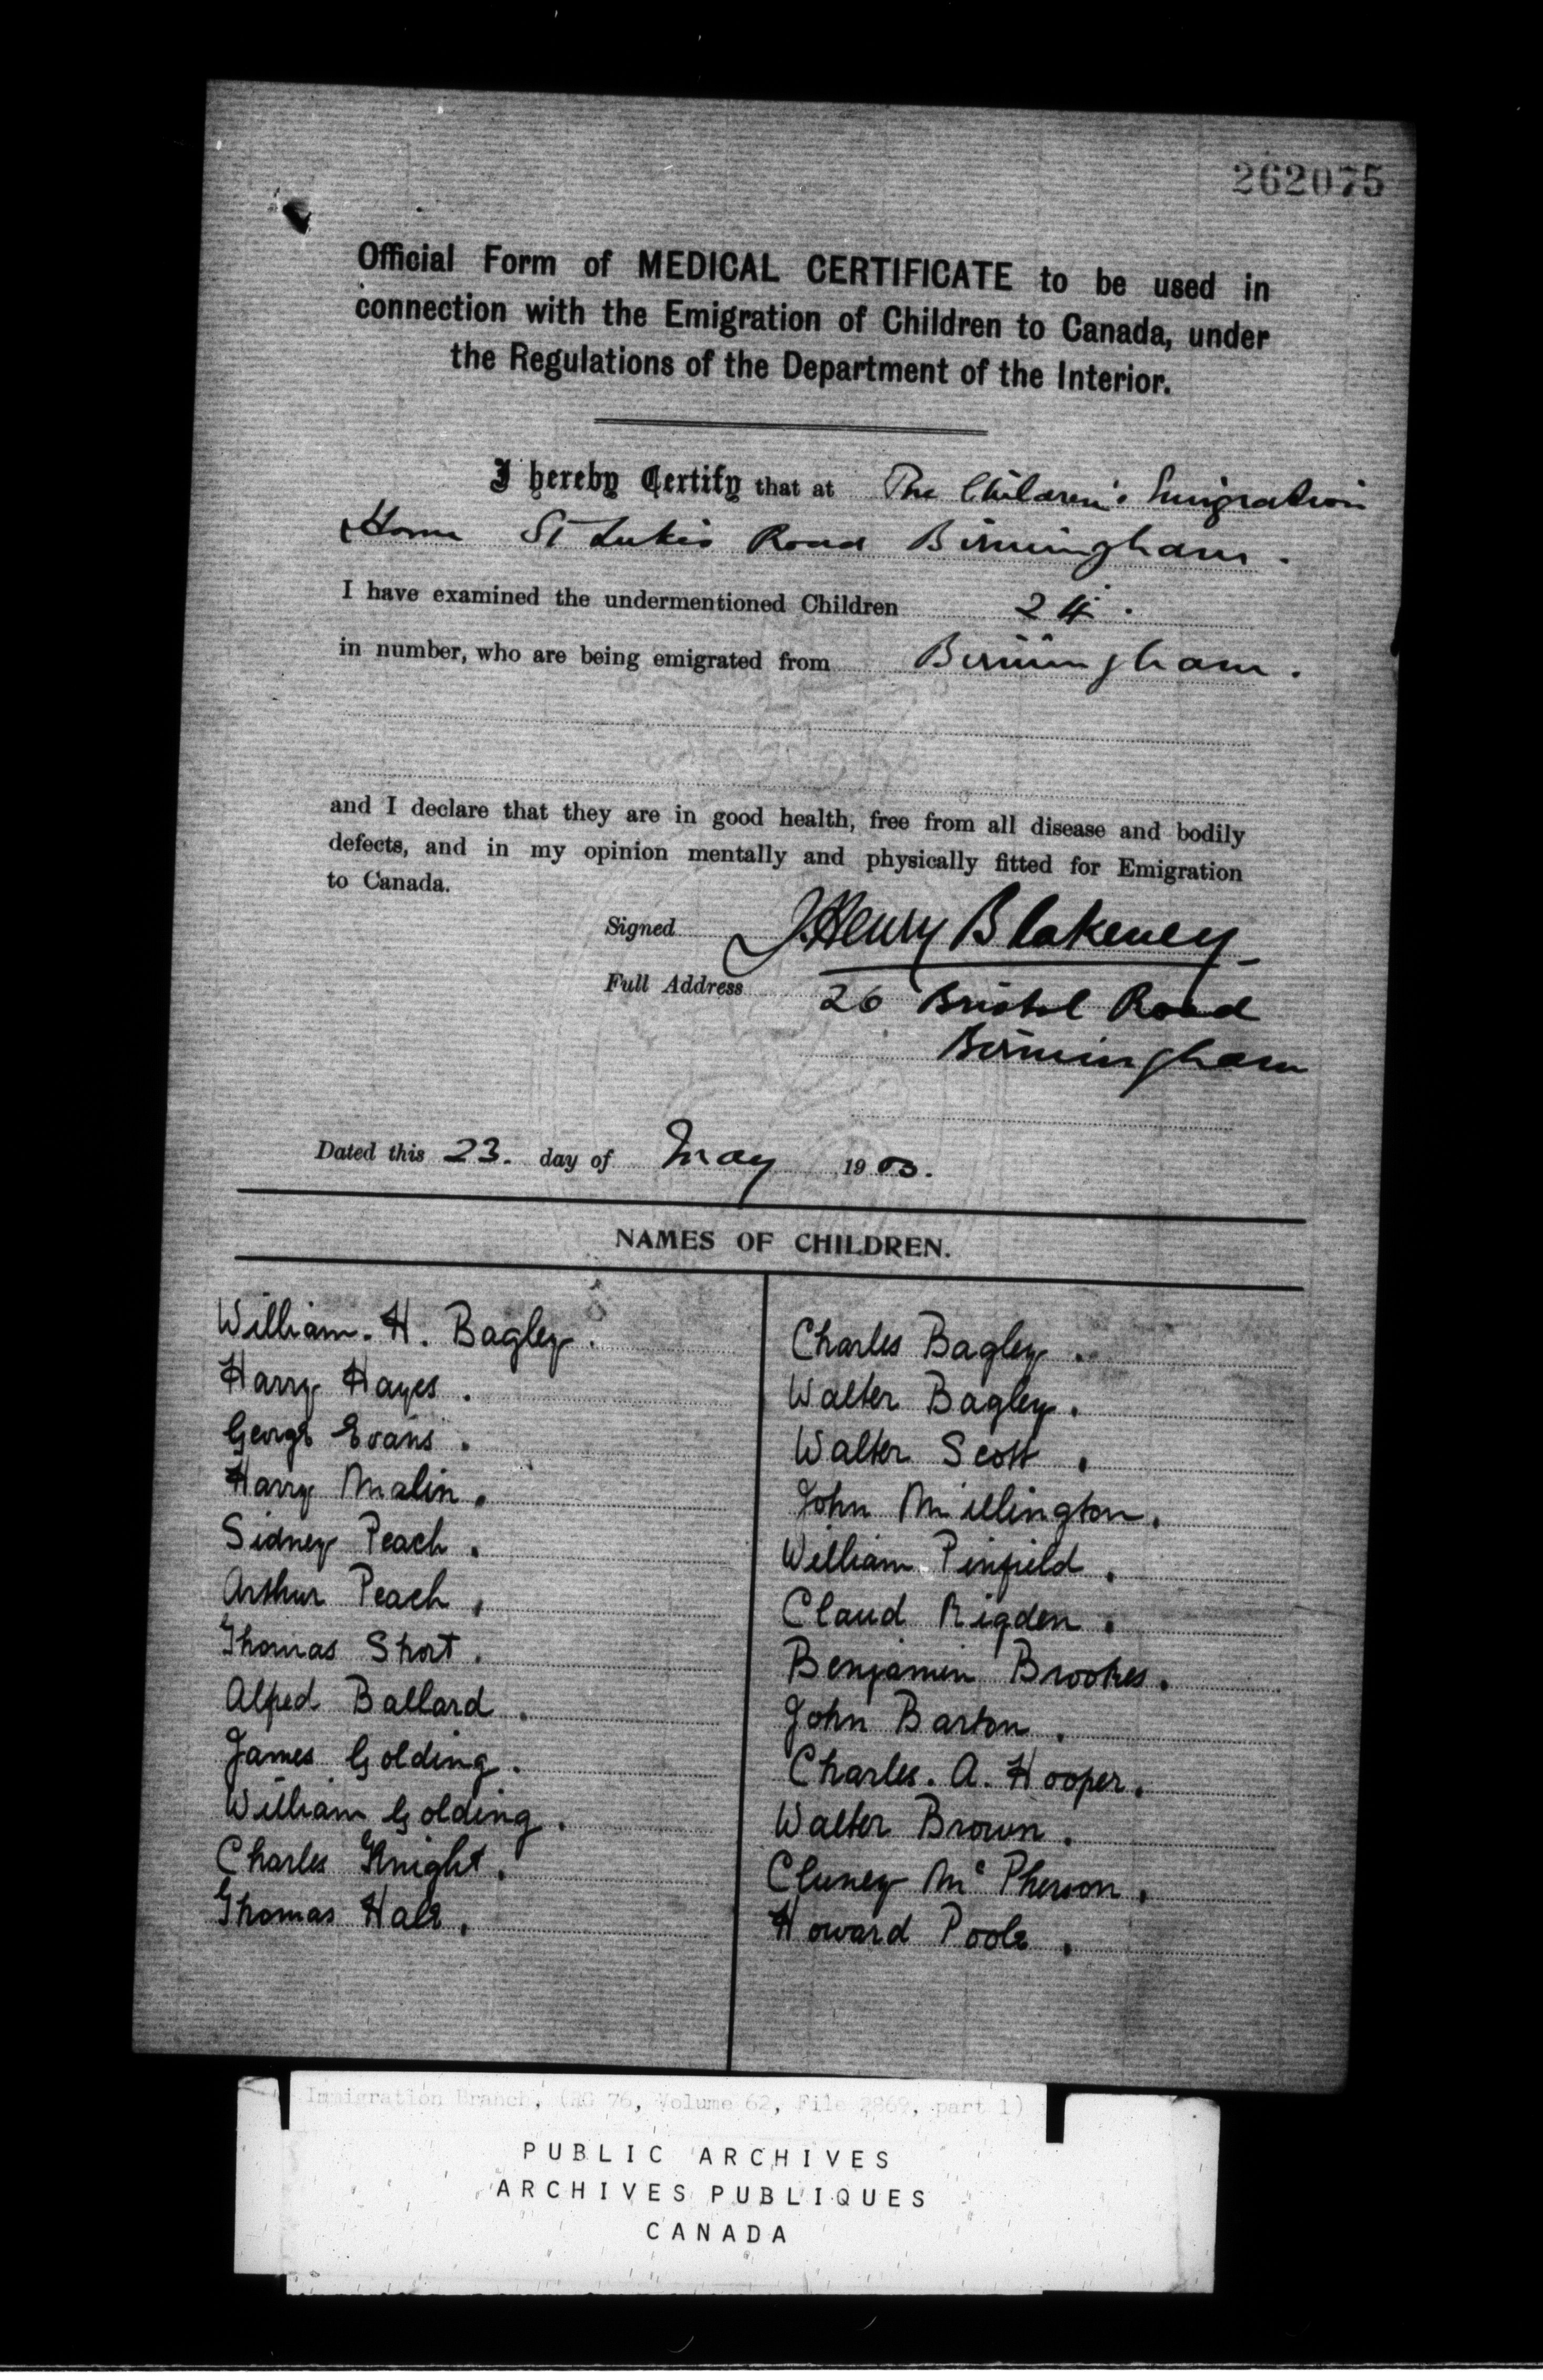 262075
Official Form of MEDICAL CERTIFICATE to be used in
connection with the Emigration of Children to Canada, under
the Regulations of the Department of the Interior.
I hereby Certify that at The Children's Emigration
Home St Luke's Road Birmingham.
I have examined the undermentioned Children 24.
in number, who are being emigrated from Birmingham.
and I declare that they are in good health, free from all disease and bodily
defects, and in my opinion mentally and physically fitted for Emigration
to Canada.
Signed J. Henry Blakeney
Full Address 26 Bristol Road
Birmingham
Dated this 23. day of May 1903.
NAMES OF CHILDREN.
William. H. Bagley.
Harry Hayes.
George Evans.
Harry Malin.
Sidney Peach.
Arthur Peach.
Thomas Short.
Alfred Ballard.
James Golding.
William Golding.
Charles Knight.
Thomas Hale.
Charles Bagley.
Walter Bagley.
Walter Scott.
John Millington.
William Pinfield.
Claud Rigden.
Benjamin Brookes.
John Barton.
Charles. A. Hooper.
Walter Brown.
Cluney Mc Pherson.
Howard Poole.
Immigration Branch, (RG 76, Volume 62, File 2869, part 1)
PUBLIC ARCHIVES
ARCHIVES PUBLIQUES
CANADA